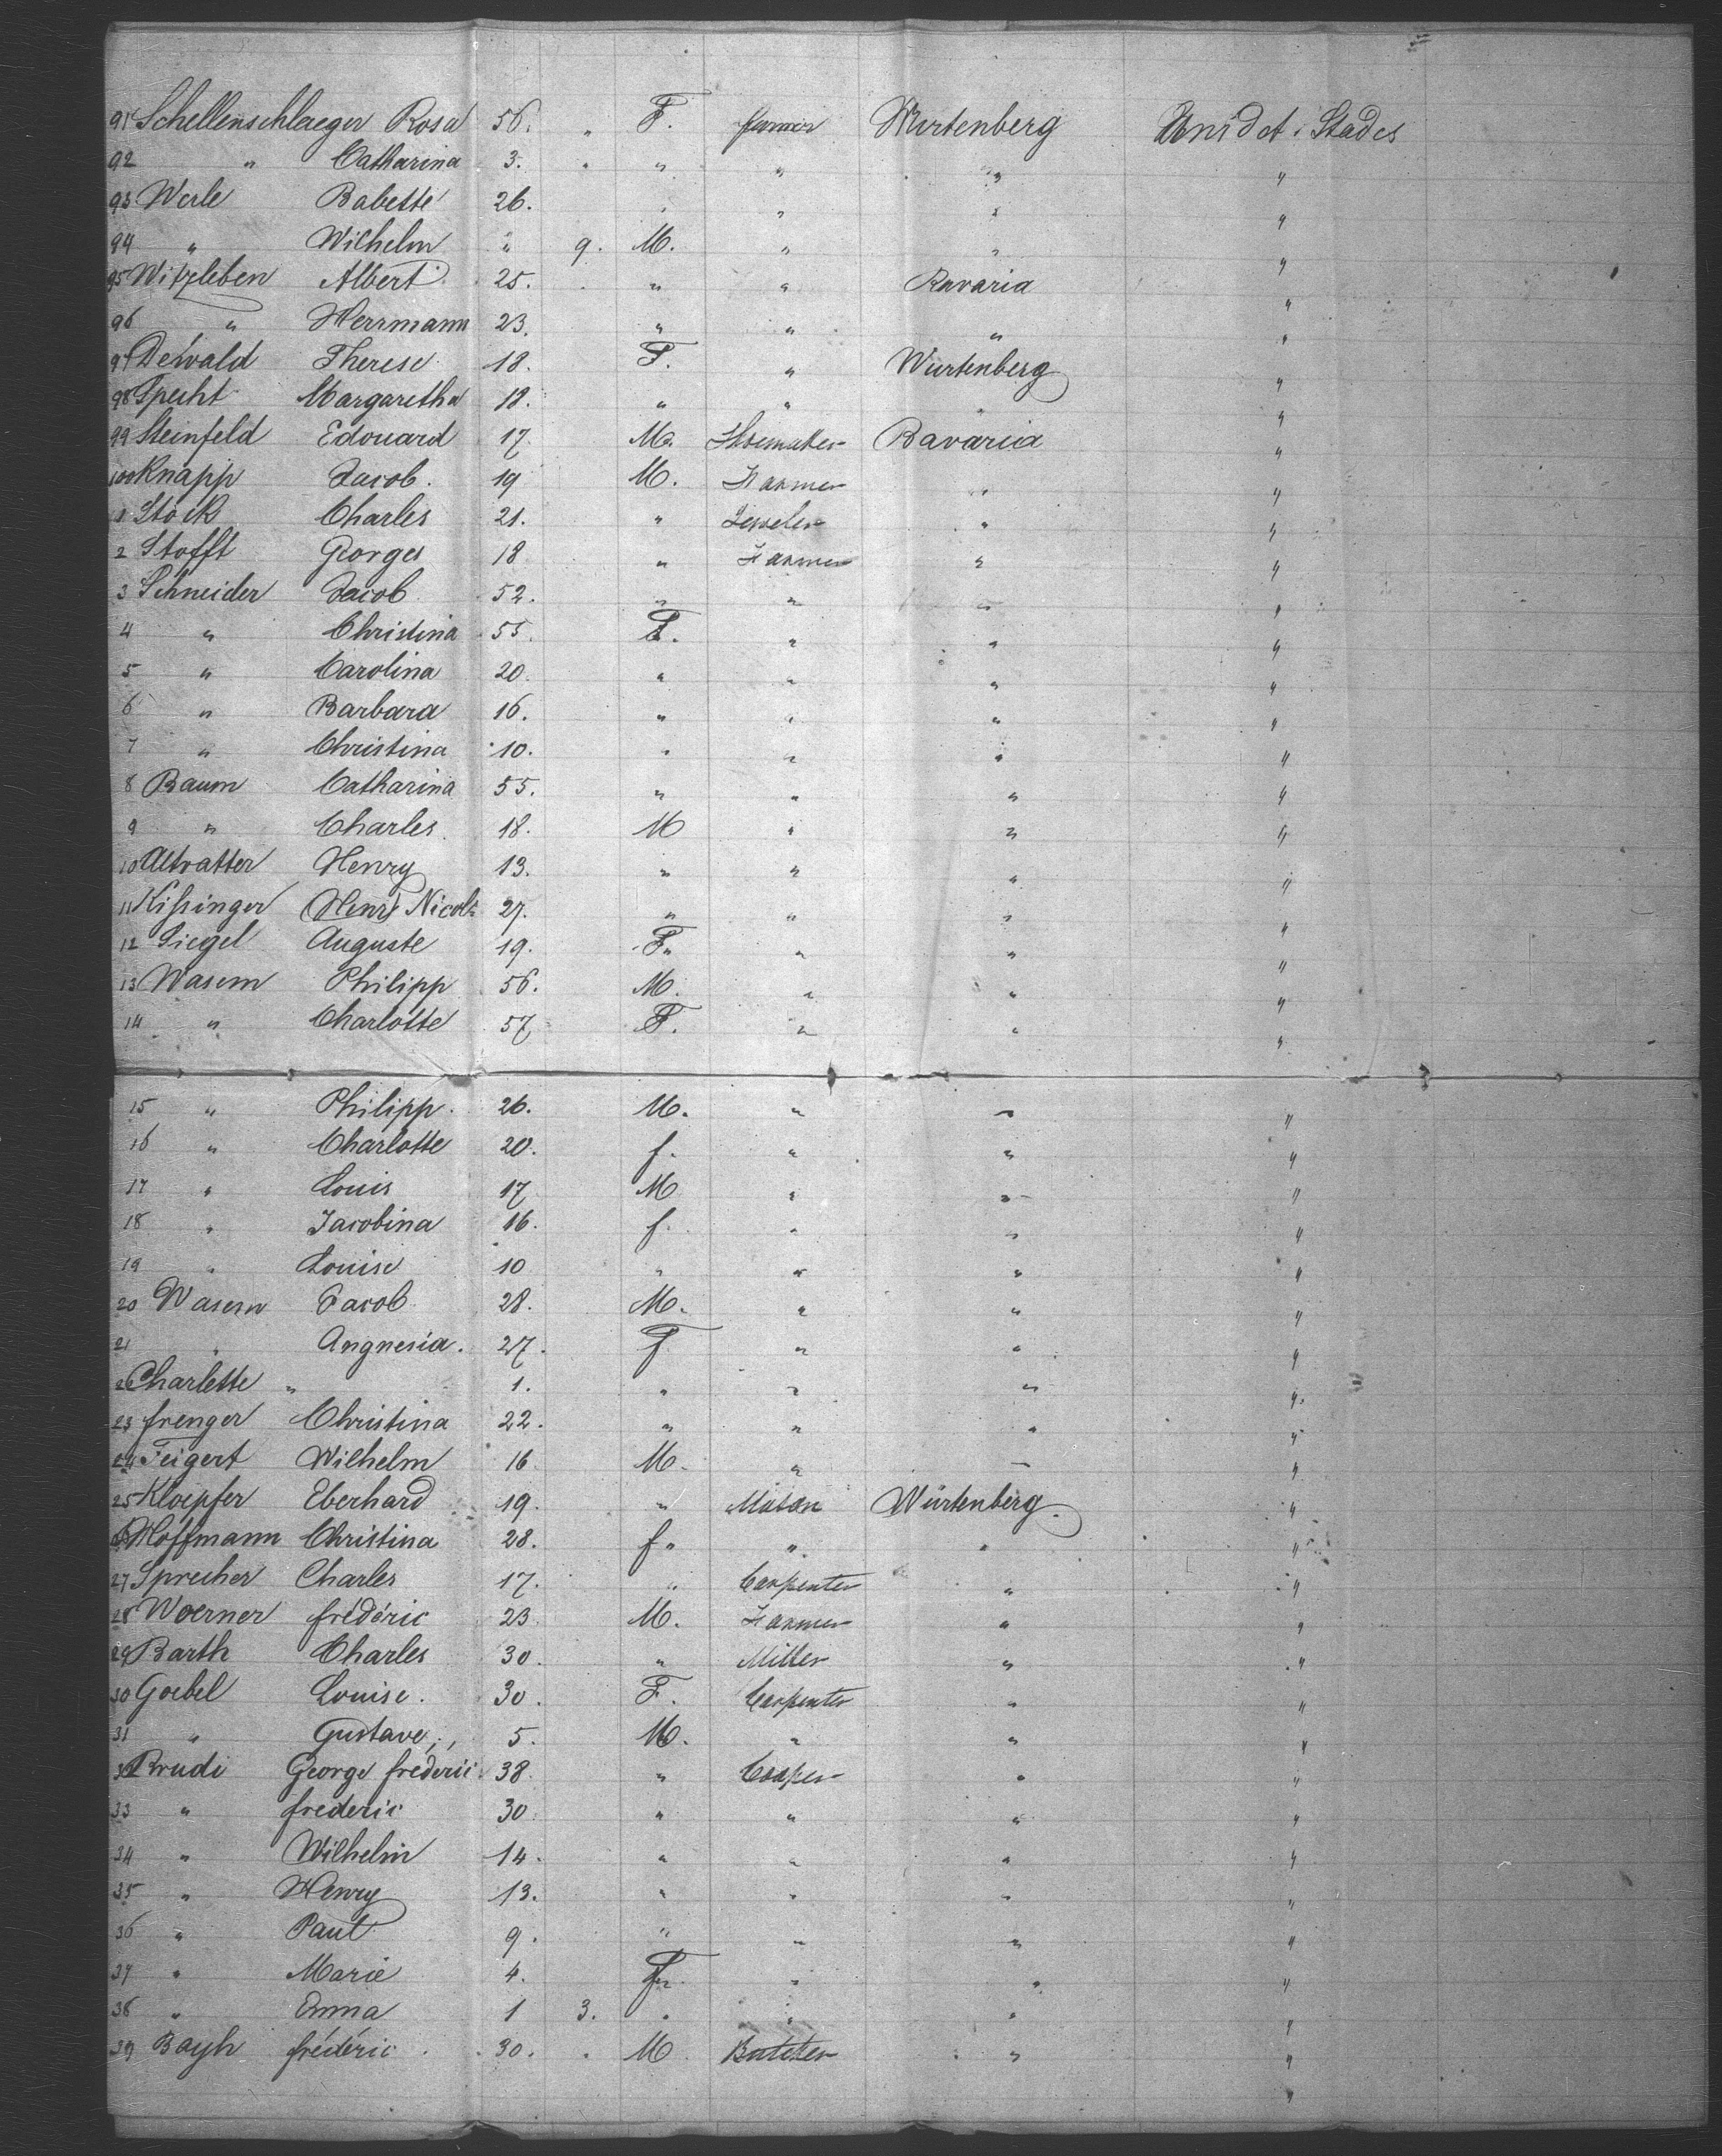 91 Schellenschlaeger Rosa 56. " F. farmer Wurtenberg Unidet Stades
92 " Catharina 3. " " " " "
93 Werle Babette 26. " " " "
94 " Wilhelm " 9. M. " " "
95 Witzleben Albert 25. " " Bavaria "
96 " Herrmann 23. " " " "
97 Dewald Therese 18. F. " Wurtenberg "
98 Specht Margaretha 18. " " " "
99 Steinfeld Edouard 17. M. Shoemaker Bavaria "
100 Knapp Jacob. 19 M. Farmer " "
1 Stock Charles 21. " " "
2 Stofft Georges 18 " Farmer " "
3 Schneider Jacob 52. " " " "
4 " Christina 55. F. " " "
5 " Carolina 20. " " " "
6 " Barbara 16. " " " "
7 " Christina 10. " " " "
8 Baum Catharina 55. " " " "
9 " Charles. 18. M " " "
10 Altvatter Henry 13. " " " "
11 Kissinger Henri Nicols 27. " " " "
12 Siegel Auguste 19. F. " " "
13 Wasem Philipp 56. M. " " "
14 " Charlotte 57 F. " " "
15 " Philipp. 26. M. " " "
16 " Charlotte 20. f. " " "
17 " Louis 17 M " " "
18 " Jacobina 16. f. " " "
19 " Louise 10 " " " "
20 Wasem Jacob 28. M. " " "
21 " Angnesia. 27. F " " "
22 Charlette " 1. " " " "
23 frenger Christina 22. " " " "
24 Feigert Wilhelm 16 M. " " "
25 Kloepfer Eberhard 19. " Mason Würtenberg. "
26 Hoffmann Christina 28. f. " " "
27 Sprecher Charles 17. " Carpenter " "
28 Woerner frédéric 23 M. Farmer " "
29 Barth Charles 30. " Miller " "
30 Goebel Louise. 30. F. Carpenter " "
31 " Gustave 5. M. " " "
32 Brudi George frederic. 38. " Cooper " "
33 " frederic 30 " " " "
34 " Wilhelm 14. " " " "
35 " Henry 13. " " " "
36 " Paul 9. " " " "
37 " Marie 4. F. " " "
38 " Emma 1 3. " " " "
39 Bayh frédéric. 30. " M Butcher " "
"